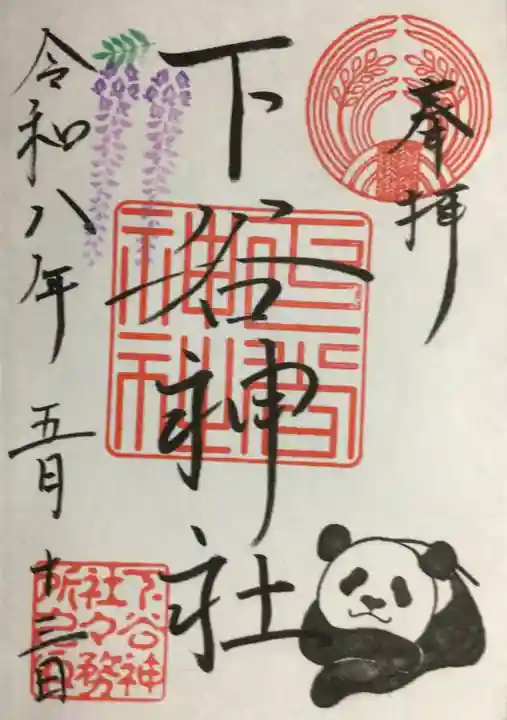 奉拝
下谷神社
下谷神社
令和八年 五月 十三日
下谷神
社々務
所之印